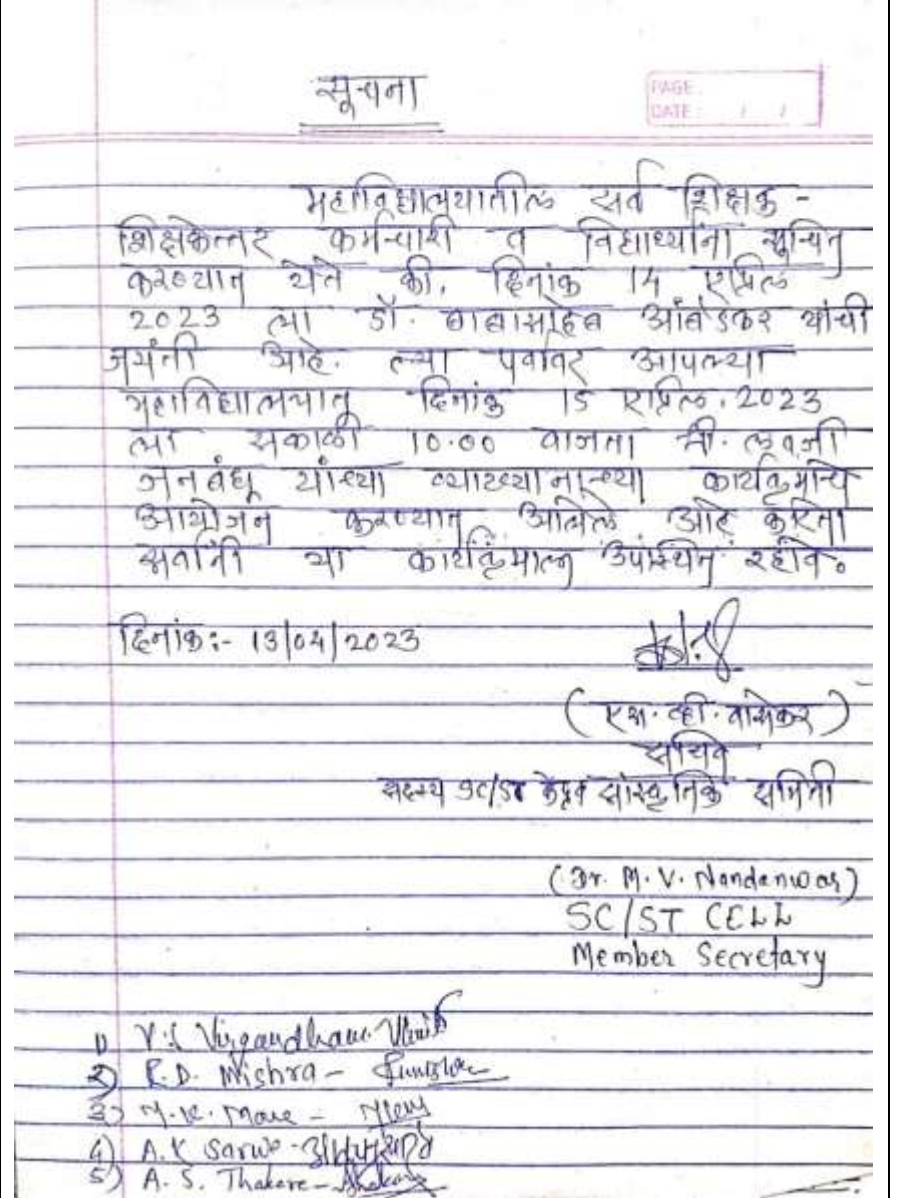 सूचना
PAGE:
DATE: / /
महाविद्यालयातील सर्व शिक्षक -
शिक्षकेत्तर कर्मचारी व विद्यार्थ्यांना सूचित
करण्यात येते की, दिनांक 14 एप्रिल
2023 ला डॉ. बाबासाहेब आंबेडकर यांची
जयंती आहे. त्या पर्वावर आपल्या
महाविद्यालयात दिनांक 15 एप्रिल, 2023
ला सकाळी 10.00 वाजता श्री.
जनबंधू यांच्या व्याख्यानाच्या कार्यक्रमाचे
आयोजन करण्यात आलेले आहे करिता
सर्वांनी या कार्यक्रमाला उपस्थित रहावे.
दिनांक:- 13/04/2023
(एस. व्ही. वासेकर)
सचिव
सदस्य SC/ST सांस्कृतिक समिती
(Dr. M. V. Nandanwar)
SC/ST CELL
Member Secretary
1)
2) R. D. Mishra -
3) M. K. More -
4) A. K Sarwe -
5) A. S. Thakare -